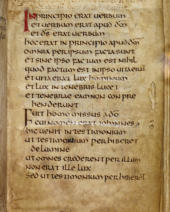 IN principio erat uerbum
et uerbum erat apud dm
et ds erat uerbum
hoc erat in principio apud dm
omnia per ipsum facta sunt
et sine ipso factum est nihil
quod factum est in ipso uita est
et uita erat lux hominum
et lux in tenebris lucet
et tenebrae eam non con pre
henderunt
Fuit homo missus a do
cui nomen erat iohannes
hic uenit in testimonium
ut testimonium perhiberet
de lumine
ut omnes crederent per illum
non erat ille lux
sed ut testimonium perhiberet